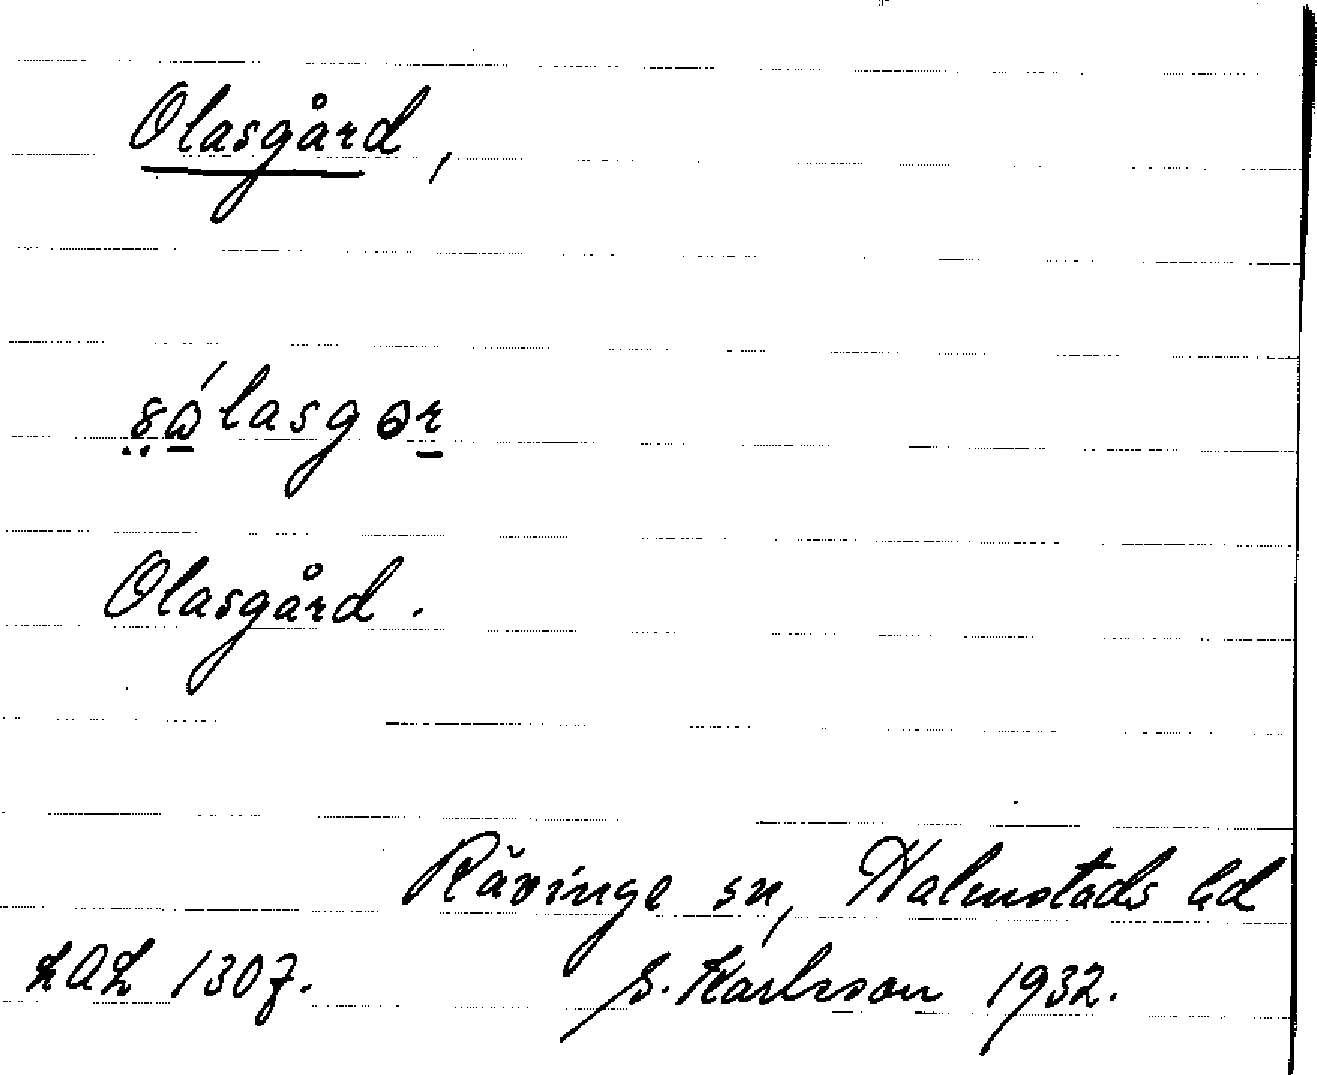 Olasgård,
Olasgård.
Rävinge sn, Halmstads hd
LAL 1307. S. Karlsson 1932.